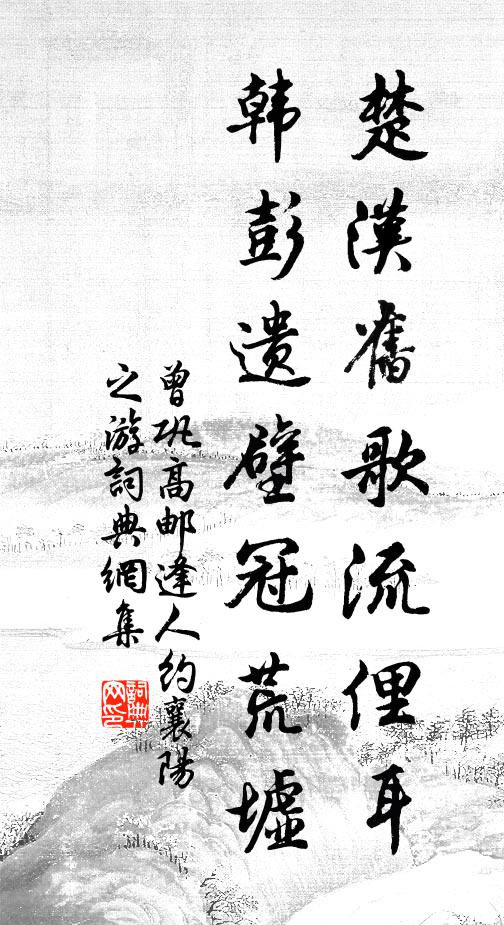 楚漢舊歌流俚耳
韓彭遺壁冠荒墟
曾巩高邮逢人約襄陽
之游詞典網集
詞典网印